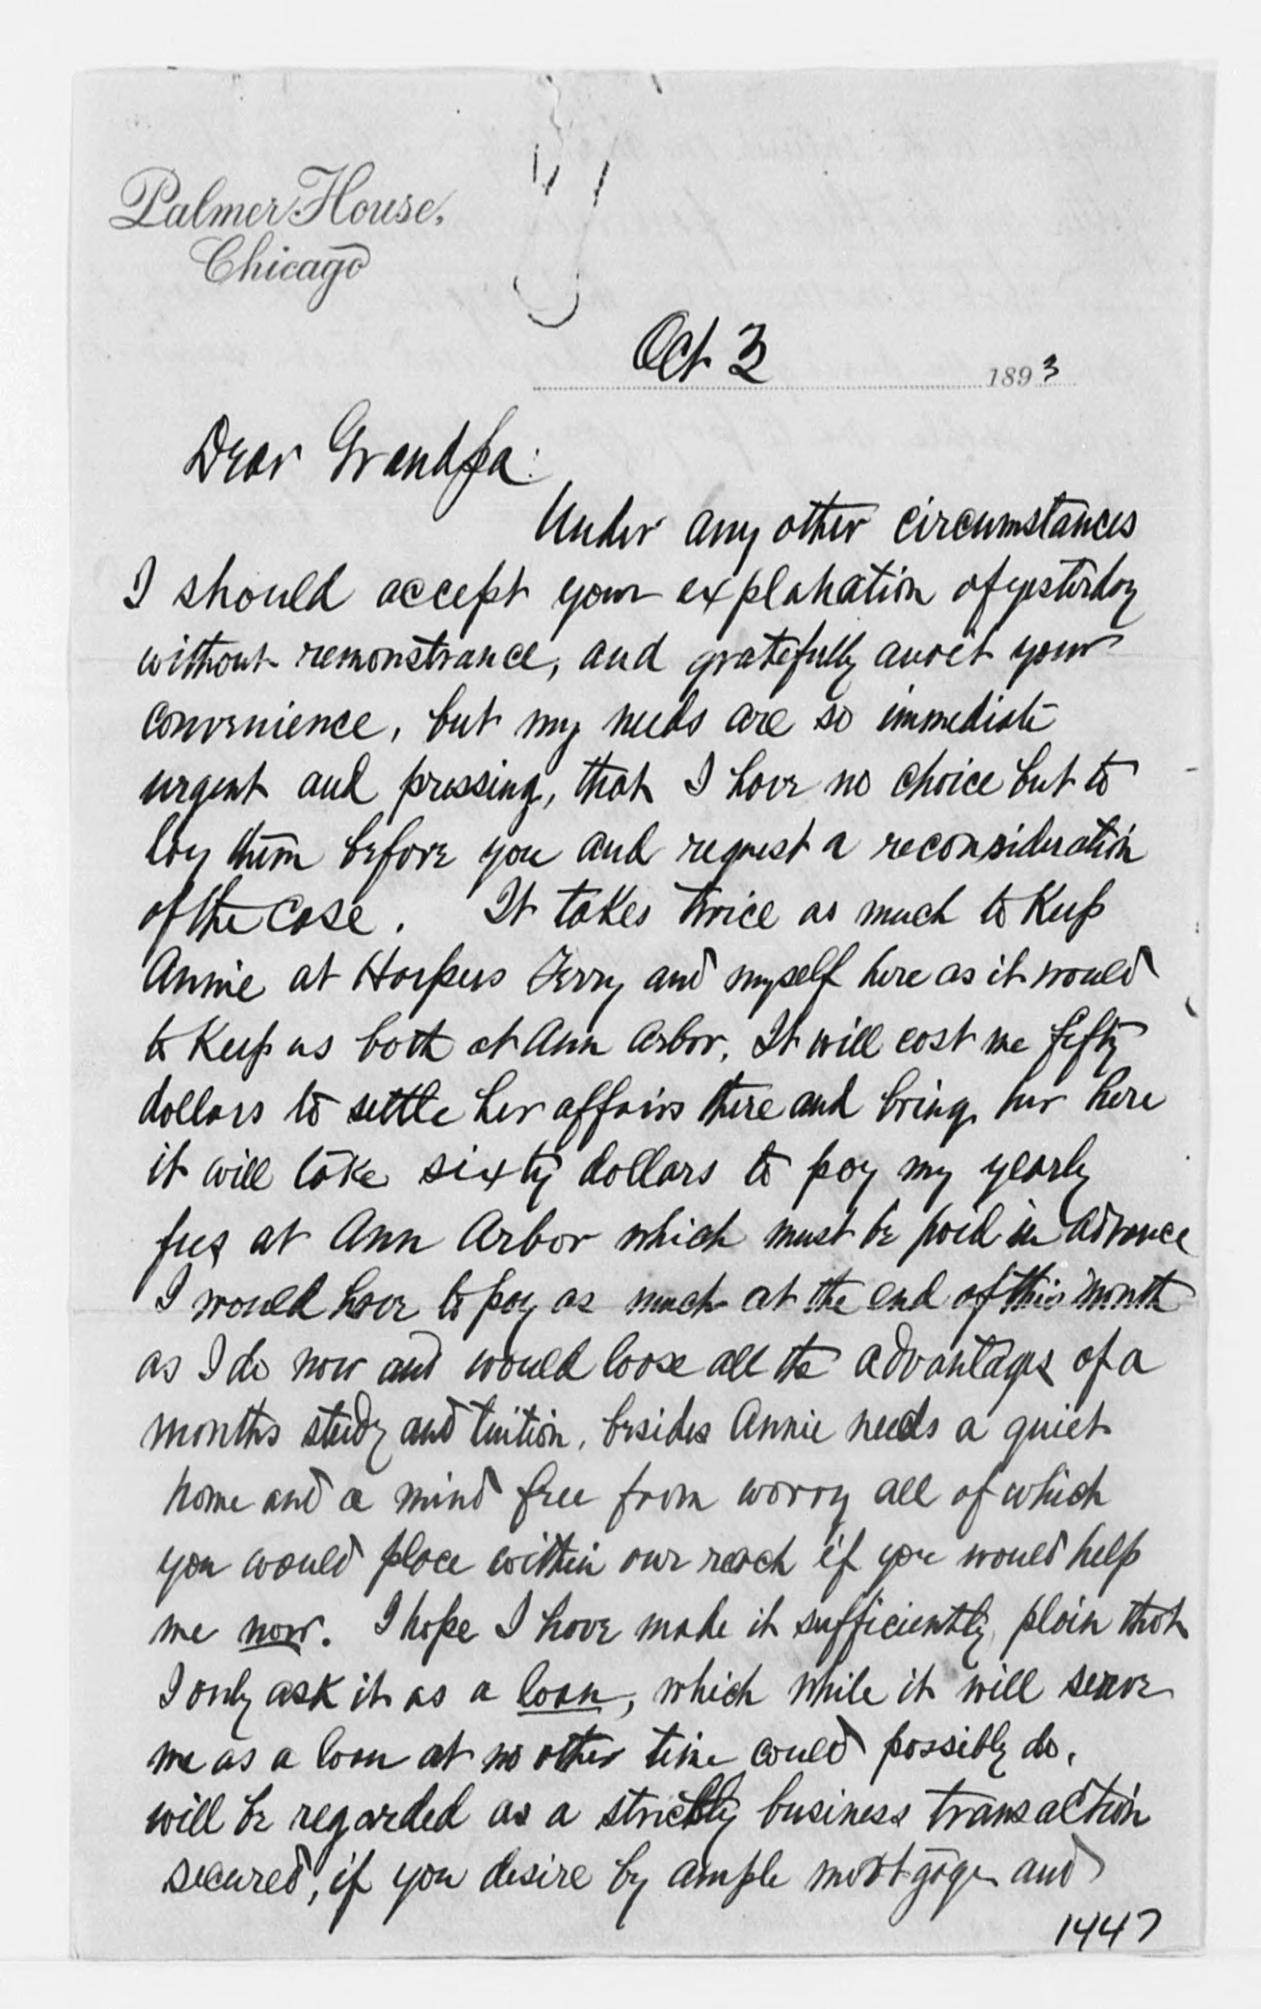 Palmer House,
Chicago
Oct 3 1893
Dear Grandpa:
Under any other circumstances
I should accept your explanation of yesterday
without remonstrance, and gratefully await your
convenience, but my needs are so immediate
urgent and pressing, that I have no choice but to
lay them before you and request a reconsideration
of the case. It takes twice as much to keep
Annie at Harpers Ferry and myself here as it would
to keep us both at Ann Arbor. It will cost me fifty
dollars to settle her affairs there and bring her here
it will take sixty dollars to pay my yearly
fees at Ann Arbor which must be paid in advance
I would have to pay as much at the end of this month
as I do now and would loose all the advantages of a
months study and tuition, besides Annie needs a quiet
home and a mind free from worry all of which
you would place within our reach if you would help
me now. I hope I have made it sufficiently plain that
I only ask it as a loan, which while it will serve
me as a loan at no other time could possibly do,
will be regarded as a strictly business transaction
secured, if you desire by ample mortgage and
1447